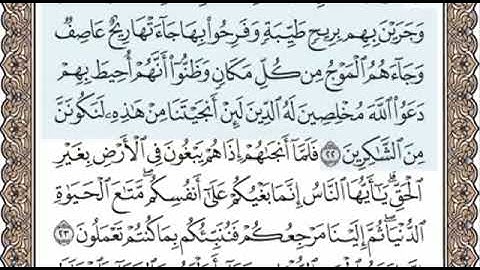 وَجَرَيْنَ بِهِم بِرِيحٍ طَيِّبَةٍ وَفَرِحُوا۟ بِهَا جَآءَتْهَا رِيحٌ عَاصِفٌ
وَجَآءَهُمُ ٱلْمَوْجُ مِن كُلِّ مَكَانٍ وَظَنُّوٓا۟ أَنَّهُمْ أُحِيطَ بِهِمْ
دَعَوُا۟ ٱللَّهَ مُخْلِصِينَ لَهُ ٱلدِّينَ لَئِنْ أَنجَيْتَنَا مِنْ هَٰذِهِۦ لَنَكُونَنَّ
مِنَ ٱلشَّٰكِرِينَ ٢٢ فَلَمَّآ أَنجَىٰهُمْ إِذَا هُمْ يَبْغُونَ فِى ٱلْأَرْضِ بِغَيْرِ
ٱلْحَقِّ ۗ يَٰٓأَيُّهَا ٱلنَّاسُ إِنَّمَا بَغْيُكُمْ عَلَىٰٓ أَنفُسِكُم ۖ مَّتَٰعَ ٱلْحَيَوٰةِ
ٱلدُّنْيَا ۖ ثُمَّ إِلَيْنَا مَرْجِعُكُمْ فَنُنَبِّئُكُم بِمَا كُنتُمْ تَعْمَلُونَ ٢٣